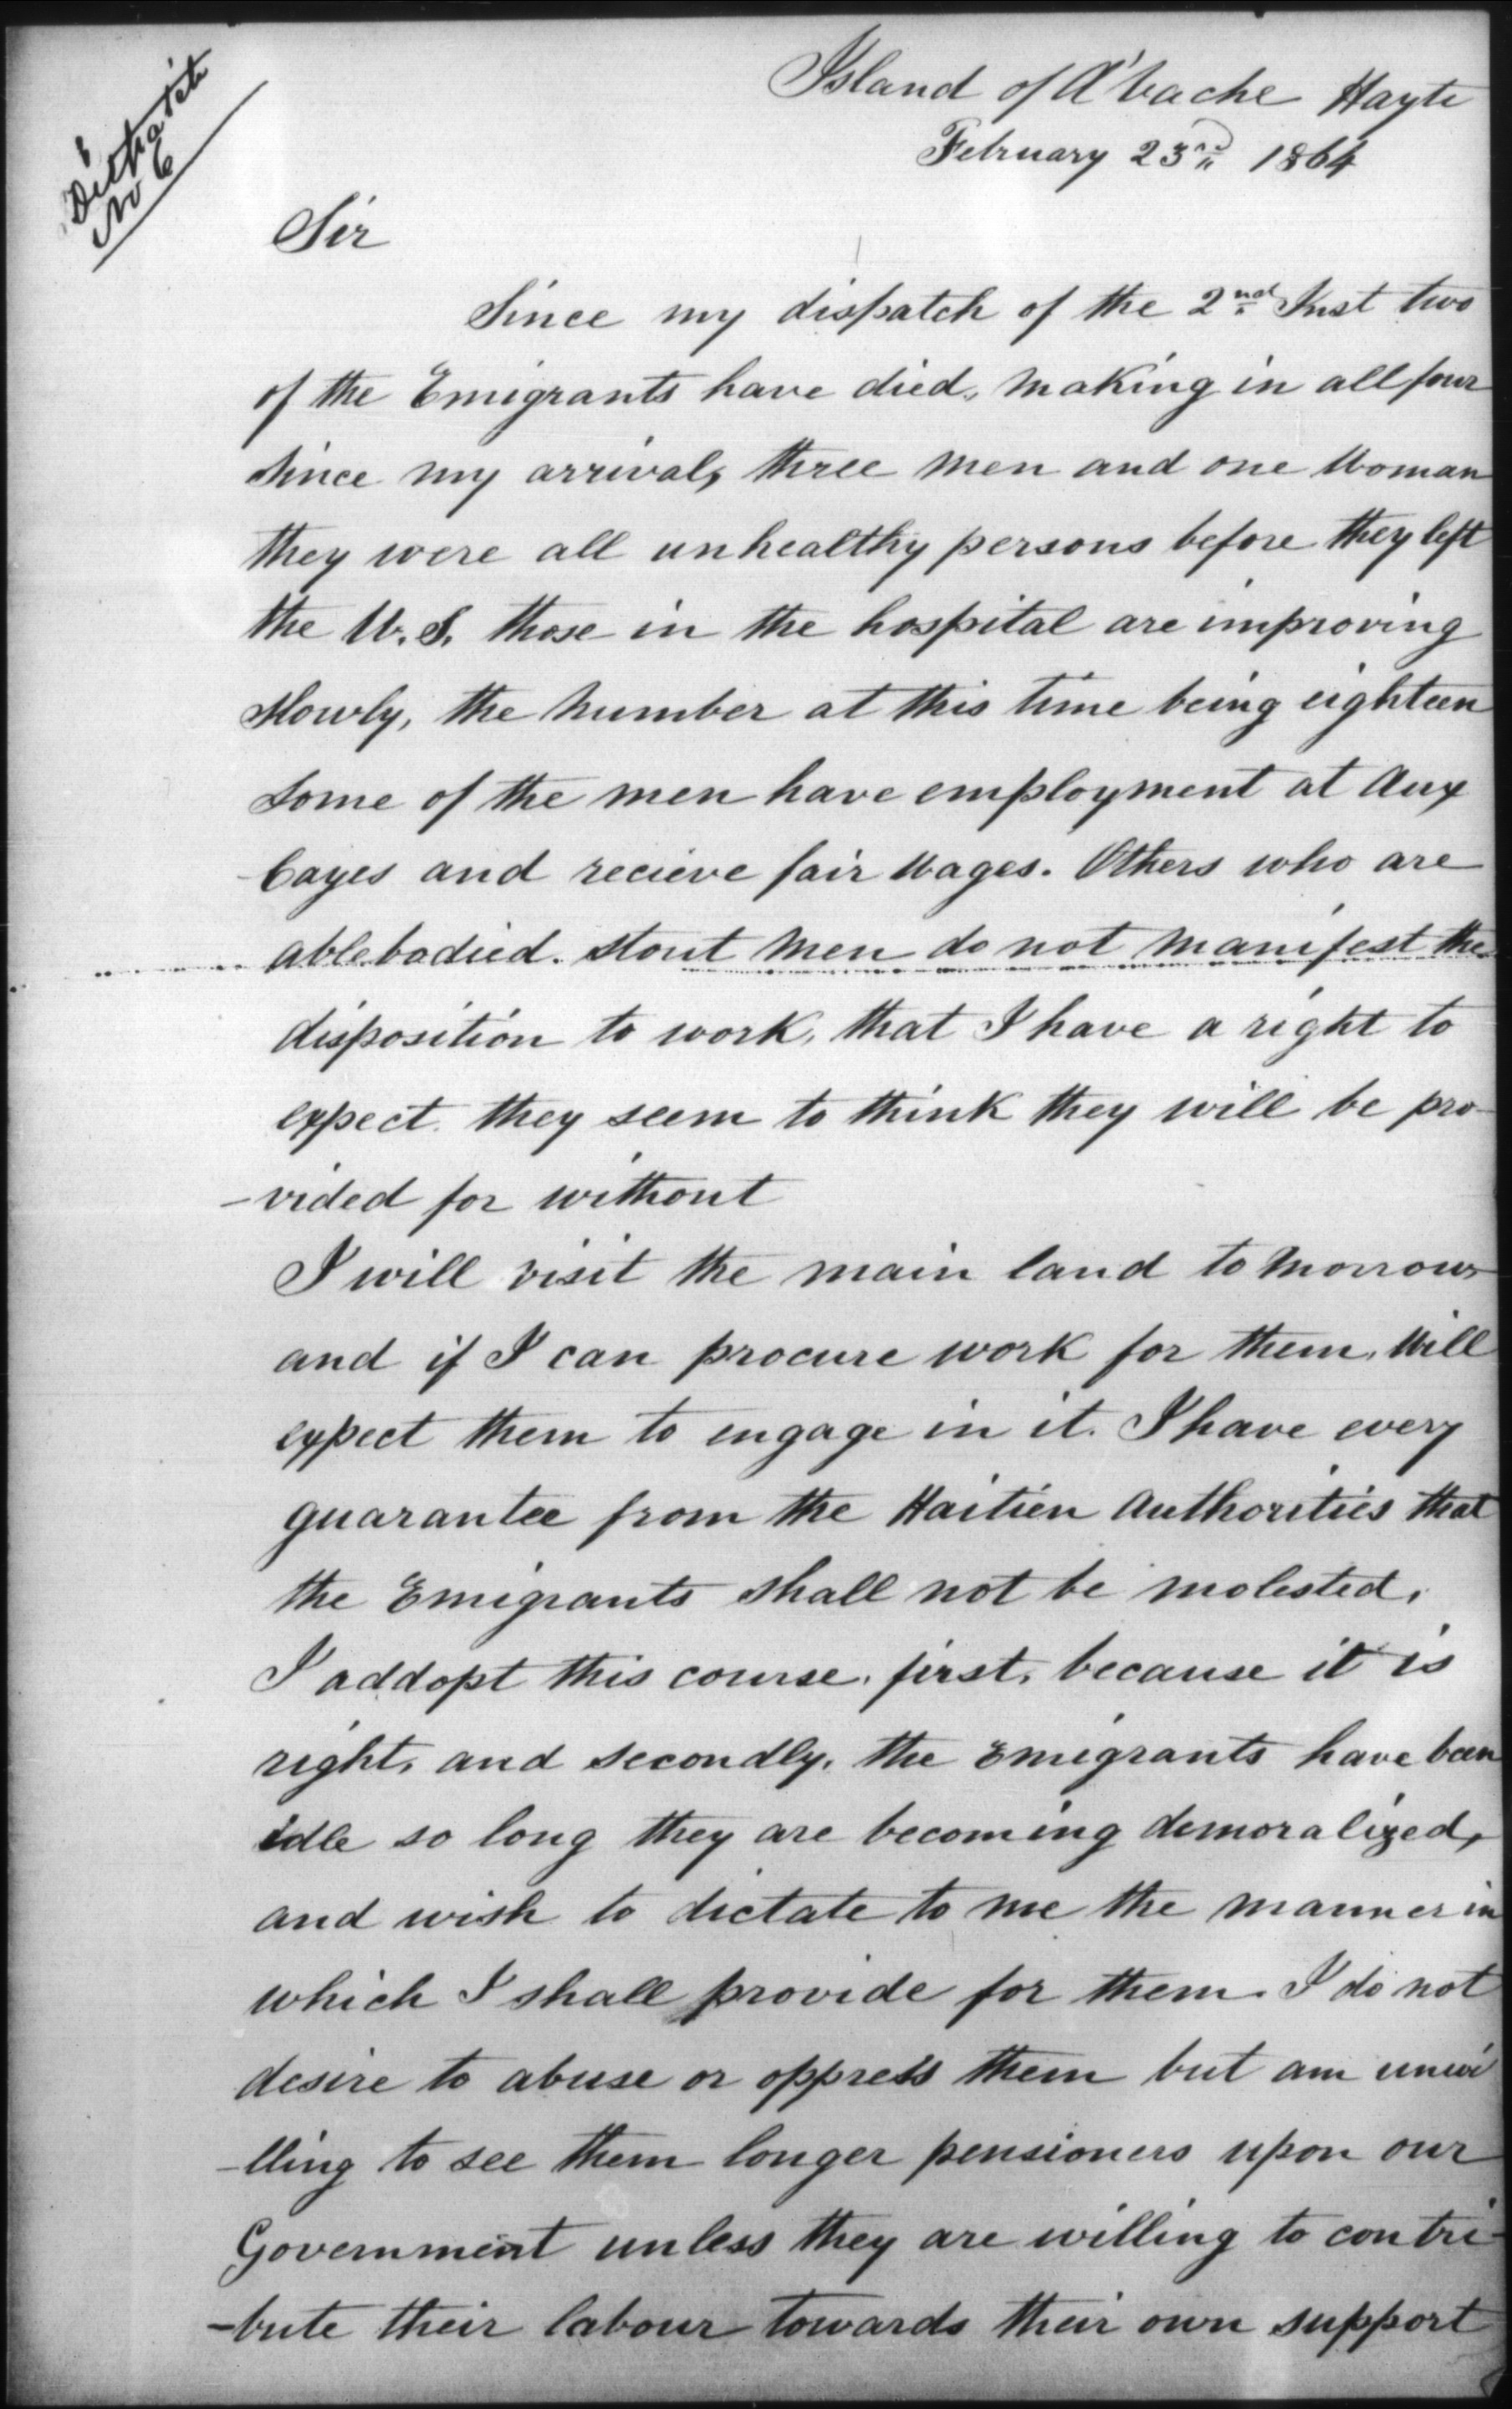 Dispatch
No 6
Island of A'Vache Hayti
February 23rd 1864
Sir
Since my dispatch of the 2nd Inst two
of the Emigrants have died, making in all four
since my arrival, three men and one Woman
they were all unhealthy persons before they left
the U.S. those in the hospital are improving
slowly, the number at this time being eighteen
Some of the men have employment at Aux
Cayes and recieve fair Wages. Others who are
ablebodied. stout men do not manifest the
disposition to work, that I have a right to
expect. they seem to think they will be pro-
-vided for without
I will visit the main land to morrow
and if I can procure work for them, Will
expect them to engage in it. I have every
guarantee from the Haitien Authorities that
the Emigrants shall not be molested,
I addopt this course, first, because it is
right, and secondly, the Emigrants have been
idle so long they are becoming demoralized,
and wish to dictate to me the manner in
which I shall provide for them. I do not
desire to abuse or oppress them but am unwi
-lling to see them longer pensioners upon our
Government unless they are willing to contri-
-bute their labour towards their own support